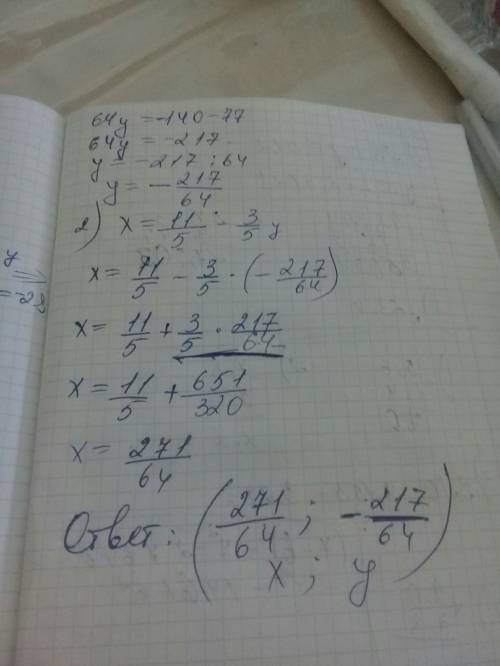 64y = -140 - 77
64y = -217
y = -217 : 64
y = -217/64
2) x = 11/5 - 3/5 y
x = 11/5 - 3/5 · (-217/64)
x = 11/5 + 3/5 · 217/64
x = 11/5 + 651/320
x = 271/64
Ответ: (271/64 ; -217/64)
x ; y
y
= -28